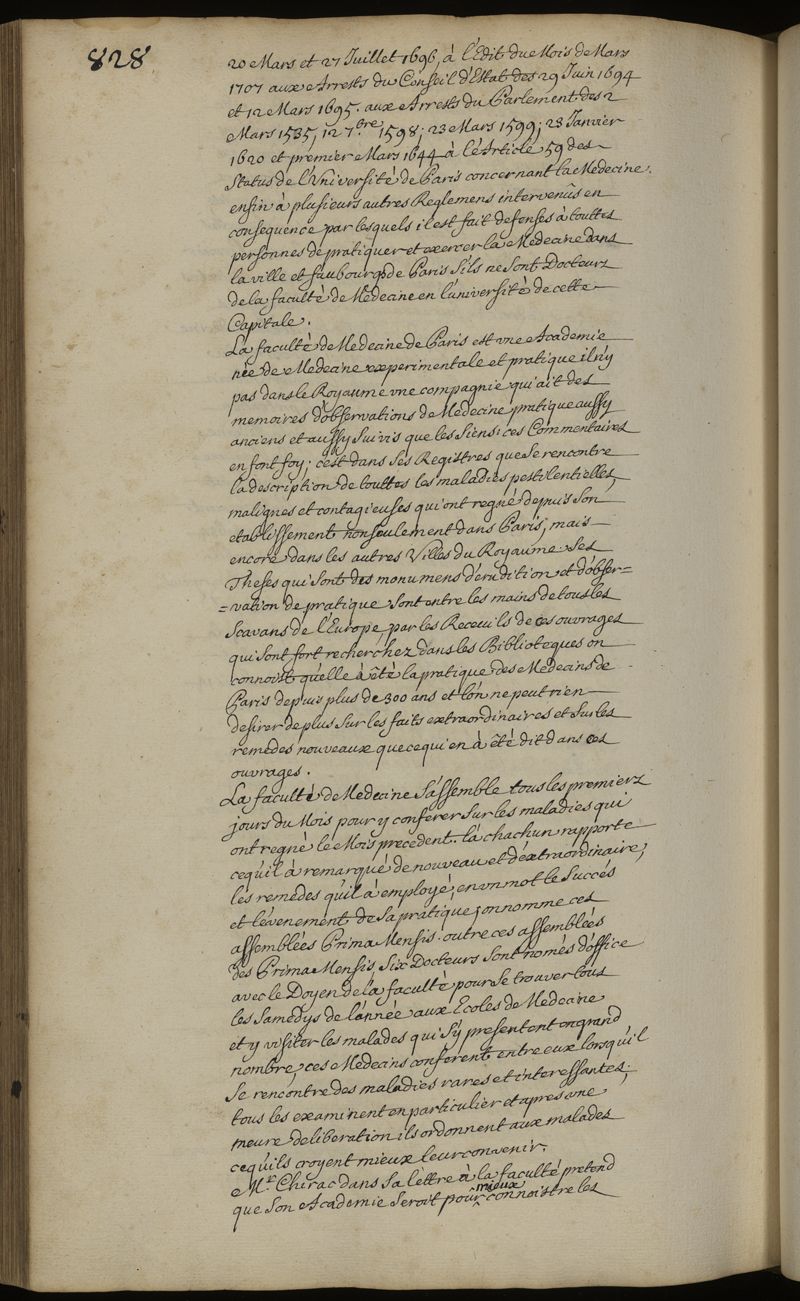 828
20 Mars et 27 Juillet 1696, à l'Edit du Mois de Mars
1707 aux Arrests du Conseil d'Estat des 29 Juin 1694
et 12 Mars 1695. aux Arrests du Parlement des 2
Mars 1535, 12 7.bre 1598; 23 Mars 1599; 23 Janvier
1620 et premier Mars 1644 à l'Article 59 des
Status de l'Université de Paris concernant la Medecine.
enfin à plusieurs autres Reglemens intervenûs en
consequence par lesquels il est fait defenses à touttes
personnes de pratiquer et exercer la Medecine dans
la ville et faubourgs de Paris s'ils ne sont Docteurs
de la faculté de Medecine en l'université de cette
Capitale.
La faculté de Medecine de Paris est une Academie
née de Medecine experimentale et pratique il n'y
pas dans le Royaume une compagnie qui ait des
memoires d'observations de Medecine pratique aussy
anciens et aussy suivis que les siens; ces Commentaires
en font foy; c'est dans ses Registres que se rencontre
la description de touttes les maladies pestilentielles,
malignes et contagieuses qui ont regné depuis son
etablissement nonseulement dans Paris, mais
encore dans les autres Villes du Royaume Ses
Theses qui sont des monumens d'erudition et d'obser=
=vation de pratique sont entre les mains de tous les
Scavans de l'Europe, par les Receuils de ces ouvrages
qui sont fort recherchez dans les Biblioteques on
connoist quelle à êté la pratique des Medecins de
Paris depuis plus de 300 ans et l'on ne peut rien
desirer de plus sur les faits extraordinaires et sur les
remedes nouveaux que ce qui en à êté dit dans ces
ouvrages.
La faculté de Medecine s'assemble tous les premiers
jours du Mois pour y conferer sur les maladies qui
ont regné le Mois precedent. là chachun rapporte
ce qu'il à remarqué de nouveau et d'extraordinaire,
les remedes qu'il à employé, en un mot le succés
et l'evenement de sa pratique; on nomme ces
assemblées Prima Mensis. outre ces assemblées
des Prima Mensis, six Docteurs sont només d'office
avec le Doyen de la faculté pour se trouver tous
les samedys de l'année aux Ecoles de Medecine
et y visiter les malades qui s'y presentent en grand
nombre, ces Medecins conferent entre eux lorsqu'il
se rencontre des maladies rares et interessantes;
tous les examinent en particulier et apres une
meure deliberation ils ordonnent aux malades
ce qu'ils croyent mieux leur convenir.
Mr. Chirac dans sa lettre à la faculté pretend
que son Academie seroit pour mieux connoistre les